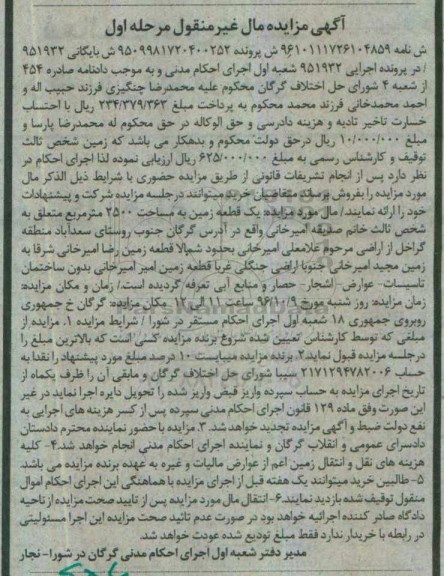 آگهی مزایده مال غیرمنقول مرحله اول
ش نامه ۹۶۱۰۱۱۱۷۲۶۱۰۴۸۵۹ ش پرونده ۹۵۰۹۹۸۱۷۲۰۴۰۰۲۵۲ ش بایگانی ۹۵۱۹۳۲
/ در پرونده اجرایی ۹۵۱۹۳۲ شعبه اول اجرای احکام مدنی و به موجب دادنامه صادره ۴۵۴
از شعبه ۴ شورای حل اختلاف گرگان محکوم علیه محمدرضا چنگیزی فرزند حبیب اله و
احمد محمدخانی فرزند محمد محکوم به پرداخت مبلغ ۲۳۴/۳۷۹/۳۶۲ ریال با احتساب
خسارت تاخیر تادیه و هزینه دادرسی و حق الوکاله در حق محکوم له محمدرضا پارسا و
مبلغ ۱۰/۰۰۰/۰۰۰ ریال درحق دولت محکوم و بدهکار می باشد که زمین شخص ثالث
توقیف و کارشناس رسمی به مبلغ ۶۲۵/۰۰۰/۰۰۰ ریال ارزیابی نموده لذا اجرای احکام در
نظر دارد پس از انجام تشریفات قانونی از طریق مزایده حضوری با شرایط ذیل الذکر مال
مورد مزایده را بفروش برساند متقاضیان خرید میتوانند درجلسه مزایده شرکت و پیشنهادات
خود را ارائه نمایند/ مال مورد مزایده یک قطعه زمین به مساحت ۲۵۰۰ مترمربع متعلق به
شخص ثالث خانم صدیقه امیرخانی واقع در آدرس گرگان جنوب روستای سعدآباد منطقه
گراخل از اراضی مرحوم غلامعلی امیرخانی بحدود شمالا قطعه زمین رضا امیرخانی شرقا به
زمین مجید امیرخانی جنوبا اراضی جنگلی غربا قطعه زمین امیر امیرخانی بدون ساختمان
تاسیسات- عوارض- اشجار- حصار و منابع آبی تعرفه گردیده است./ زمان و مکان مزایده:
زمان مزایده: روز شنبه مورخ ۹۶/۱۰/۹ ساعت ۱۱ الی ۱۲ مکان مزایده: گرگان خ جمهوری
روبروی جمهوری ۱۸ شعبه اول اجرای احکام مستقر در شورا / شرایط مزایده ۱. مزایده از
مبلغی که توسط کارشناس تعیین شده شروع برنده مزایده کسی است که بالاترین مبلغ را
درجلسه مزایده قبول نماید۲. برنده مزایده میبایست ۱۰ درصد مبلغ مورد پیشنهاد را نقدا به
حساب ۲۱۷۱۲۹۴۷۸۲۰۰۶ سیبا شورای حل اختلاف گرگان و مابقی آن را ظرف یکماه از
تاریخ اجرای مزایده به حساب سپرده واریز قبض واریز شده را تحویل دایره اجرا نماید در غیر
این صورت وفق ماده ۱۲۹ قانون اجرای احکام مدنی سپرده پس از کسر هزینه های اجرایی به
نفع دولت ضبط و آگهی مزایده تجدید خواهد شد. ۳. مزایده با حضور نماینده محترم دادستان
دادسرای عمومی و انقلاب گرگان و نماینده اجرای احکام مدنی انجام خواهد شد.۴- کلیه
هزینه های نقل و انتقال زمین اعم از عوارض مالیات و غیره به عهده برنده مزایده می باشد.
۵-طالبین خرید میتوانند یک هفته قبل از اجرای مزایده با هماهنگی این اجرای احکام اموال
منقول توقیف شده بازدید نمایند.۶-انتقال مال مورد مزایده پس از تایید صحت مزایده از ناحیه
دادگاه صادر کننده اجرائیه خواهد بود در صورت عدم تائید صحت مزایده این اجرا مسئولیتی
در رابطه با خریدار ندارد فقط مبلغ تودیع شده عودت خواهد شد.
مدیر دفتر شعبه اول اجرای احکام مدنی گرگان در شورا- نجار